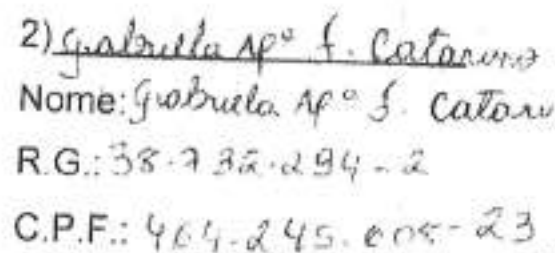 2) Gabriella Apº f. Catarino
Nome: Gabriela Apº f. Catarin
R.G.: 38.732.294-2
C.P.F.: 464.245.008-23